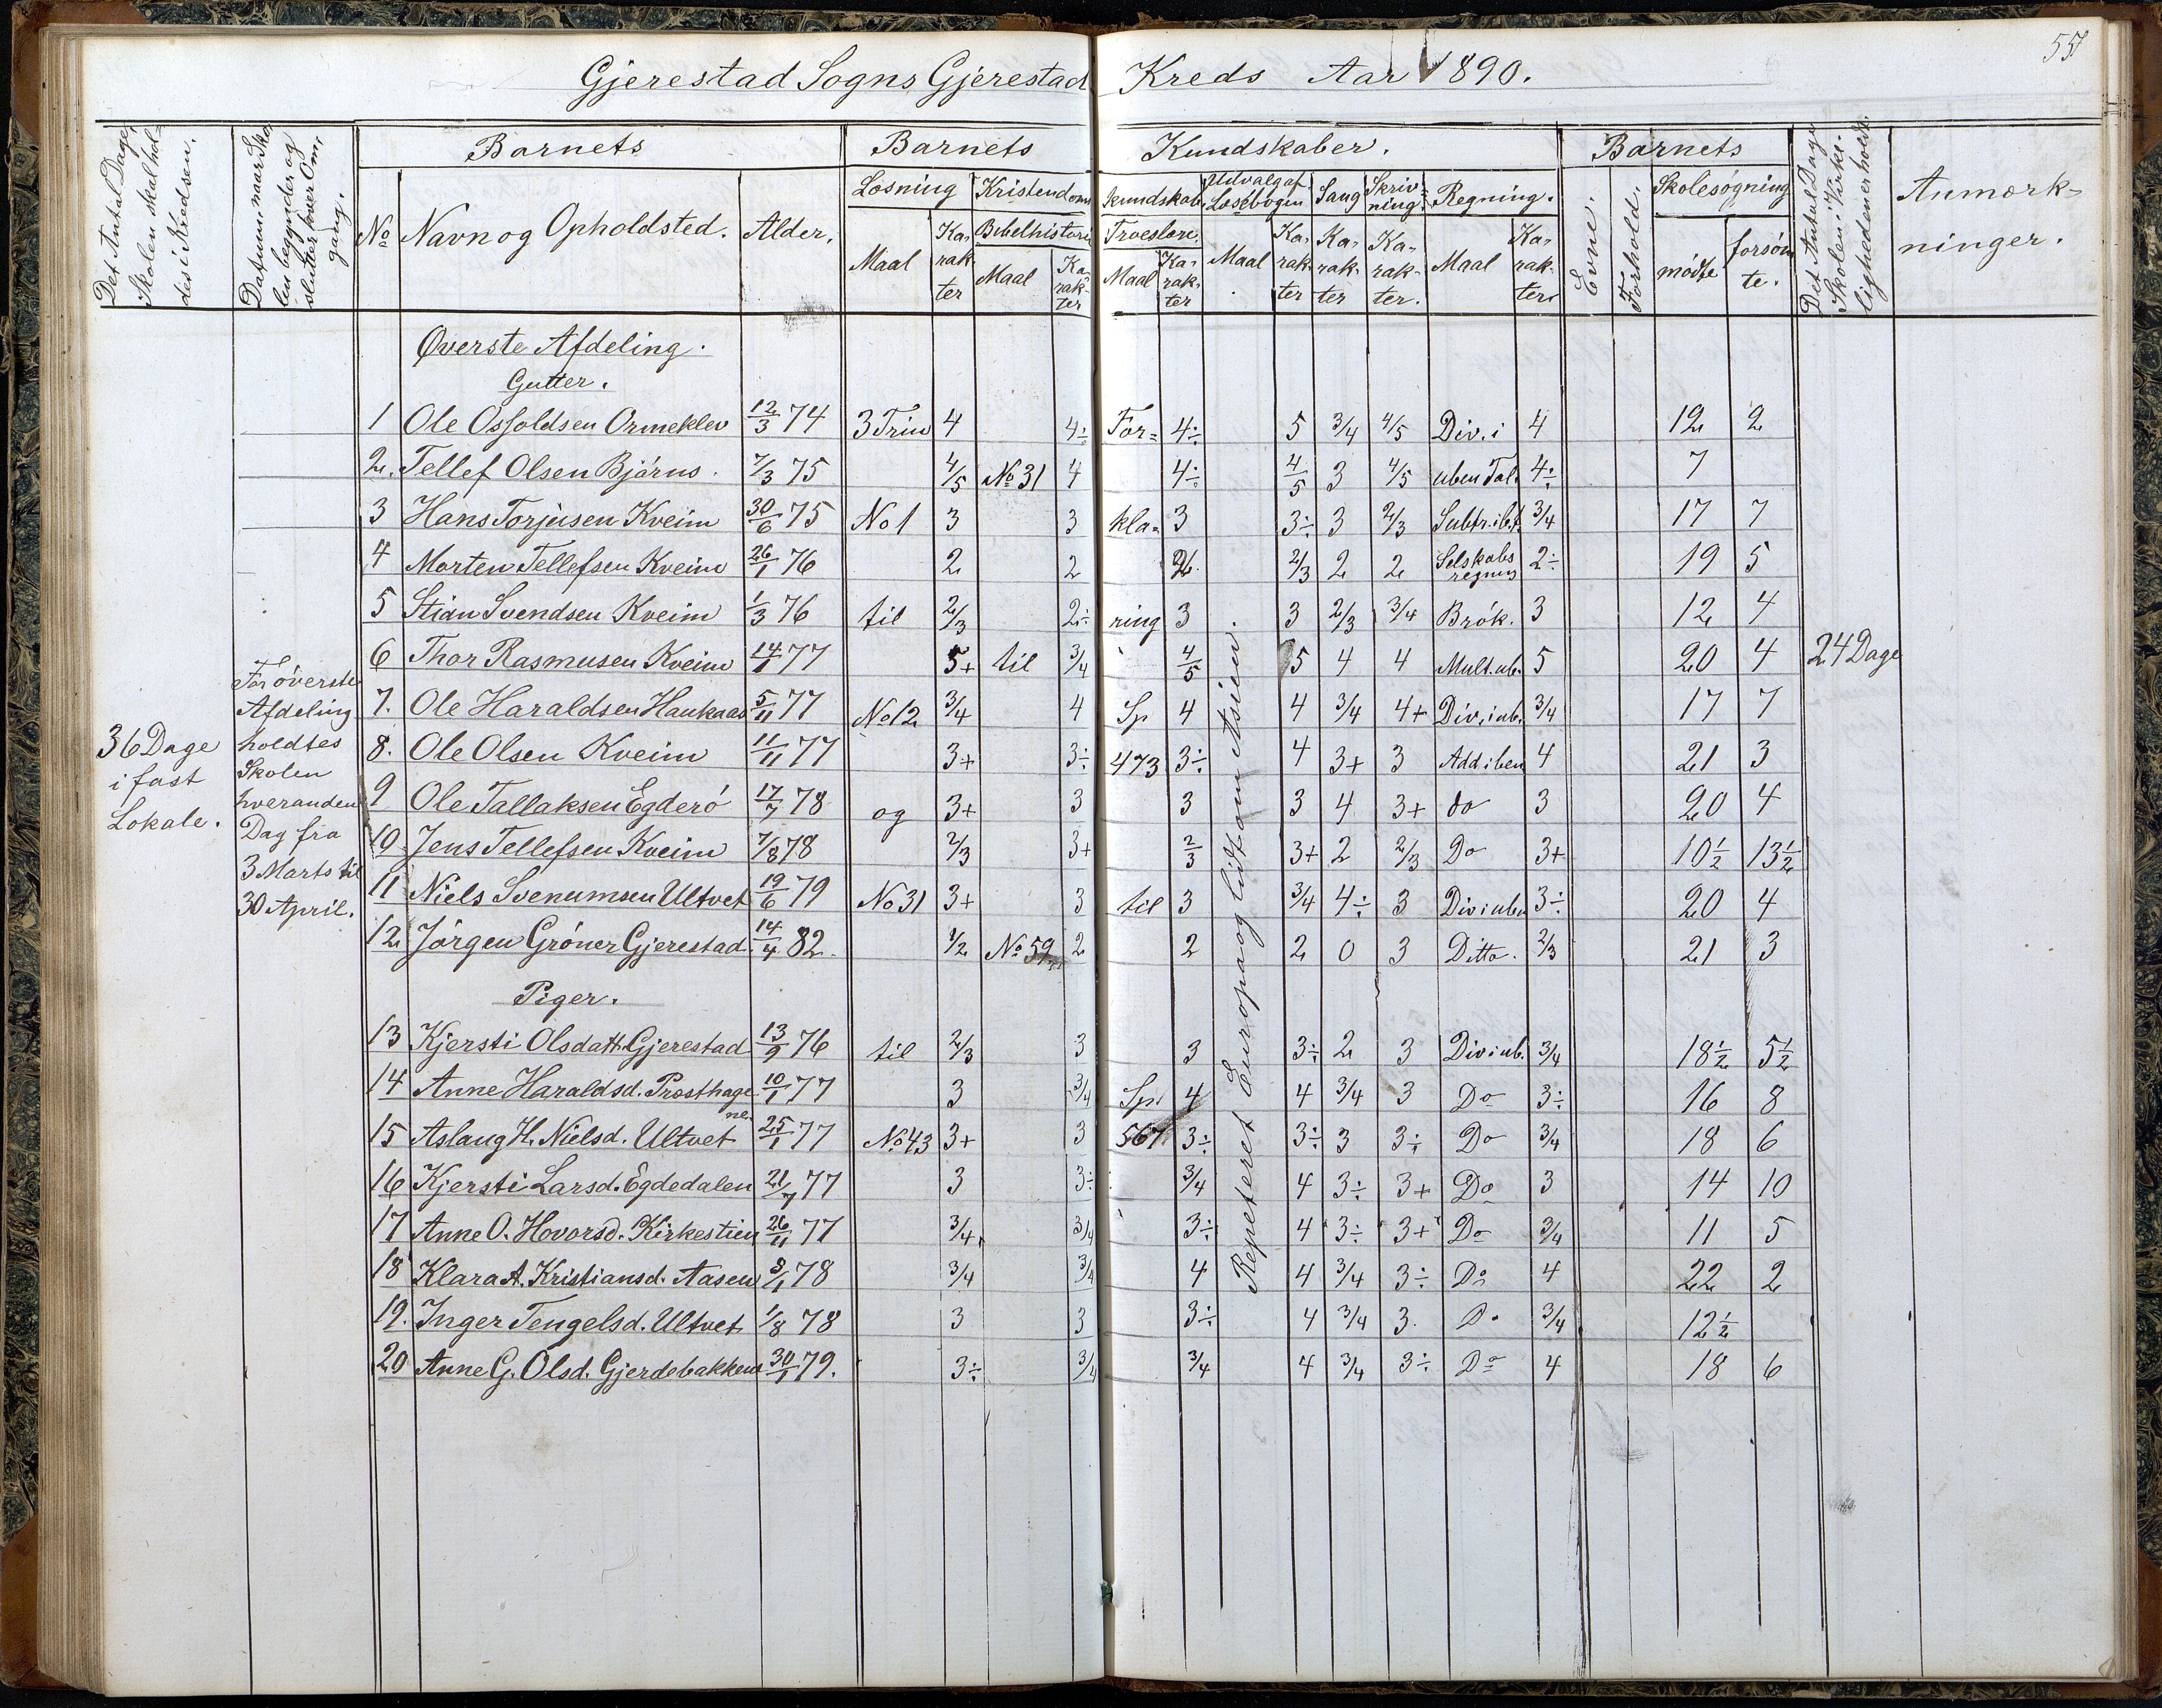 55
Gjerestad Sogns Gjerestad Kreds Aar 1890.
Det Antal Dage, Skolen skal holdes i Kredsen.
Datum, naar Skolen begynder og slutter hver Omgang.
Barnets
No
Navn og Opholdsted.
Alder.
Barnets Kundskaber.
Læsning
Maal
Karakter
Kristendomskundskab.
Bibelhistorie
Maal
Karakter
Troeslære.
Maal
Karakter
Udvalg af Læsebogen
Maal
Karakter
Sang
Karakter
Skrivning.
Karakter.
Regning.
Maal
Karakter
Barnets
Evne.
Forhold.
Skolesøgning
mødte
forsømte.
Det Antal Dage Skolen i Virkeligheden er holdt.
Anmærkninger.
Øverste Afdeling.
Gutter.
1 Ole Osfoldsen Ormeklev 12/3 74 3 Trin 4 4÷ For= 4÷ 5 3/4 4/5 Div. i 4 12 2
2. Tellef Olsen Bjärus. 7/3 75 4/5 No 31 4 4÷ 4/5 3 4/5 uben Tal. 4÷ 7
3 Hans Torjusen Kveim 30/6 75 No 1 3 3 kla= 3 3÷ 3 2/3 Subtr. i b.t. 3/4 17 7
4 Morten Tellefsen Kveim 26/1 76 2 2 2. 2/3 2 2 Selskabsregning 2÷ 19 5
5 Stian Svendsen Kveim 1/3 76 til 2/3 2÷ ring 3 3 2/3 3/4 Brök. 3 12 4
6 Thor Rasmusen Kveim 14/1 77 5+ til 3/4 4/5 5 4 4 Mult. ub. 5 20 4 24 Dage
7. Ole Haraldsen Haukaas 5/11 77 No 12 3/4 4 Sp 4 4 3/4 4+ Div, i ub. 3/4 17 7
8. Ole Olsen Kveim 11/11 77 3+ 3÷ 473 3÷ 4 3+ 3 Add i ben 4 21 3
9 Ole Tallaksen Egderö 17/7 78 og 3+ 3 3 3 4 3+ do 3 20 4
10 Jens Tellefsen Kveim 7/8 78 2/3 3+ 2/3 3+ 2 2/3 Do 3+ 10½ 13½
11 Niels Svenumsen Ultvet 19/6 79 No 31 3+ 3 til 3 3/4 4÷ 3 Div i uben 3÷ 20 4
12 Jörgen Gröner Gjerestad. 14/4 82. 1/2 No 59 2 2 2 0 3 Ditto. 2/3 21 3
Piger.
13 Kjersti Olsdatt. Gjerestad 13/9 76 til 2/3 3 3 3÷ 2 3 Div i ub. 3/4 18½ 5½
14 Anne Haraldsd. Prosthagene 10/1 77 3 3/4 Sp. 4 4 3/4 3 Do 3÷ 16 8
15 Aslaug H. Nielsd. Ultvet 25/1 77 No 43 3+ 3 567 3÷ 3÷ 3 3÷ Do 3/4 18 6
16 Kjersti Larsd. Egdedalen 21/7 77 3 3÷ 3/4 4 3÷ 3+ Do 3 14 10
17 Anne O. Hovorsd. Kirkestien 26/11 77 3/4 3/4 3÷ 4 3÷ 3+ Do 3/4 11 5
18 Klara A. Kristiansd. Aasen 8/1 78 3/4 3/4 4 4 3/4 3÷ Do 4 22 2
19. Inger Tengelsd. Ultvet 1/8 78 3 3 3÷ 4 3/4 3. Do 3/4 12½
20 Anne G. Olsd. Gjerdebakken 30/1 79. 3÷ 3/4 3/4 4 3/4 3÷ Do 4 18 6
36 Dage
i fast
Lokale.
For överste
Afdeling
holdtes
Skolen
hveranden
Dag fra
3 Marts til
30 April.
Repeteret Europa og lidt om Asien.